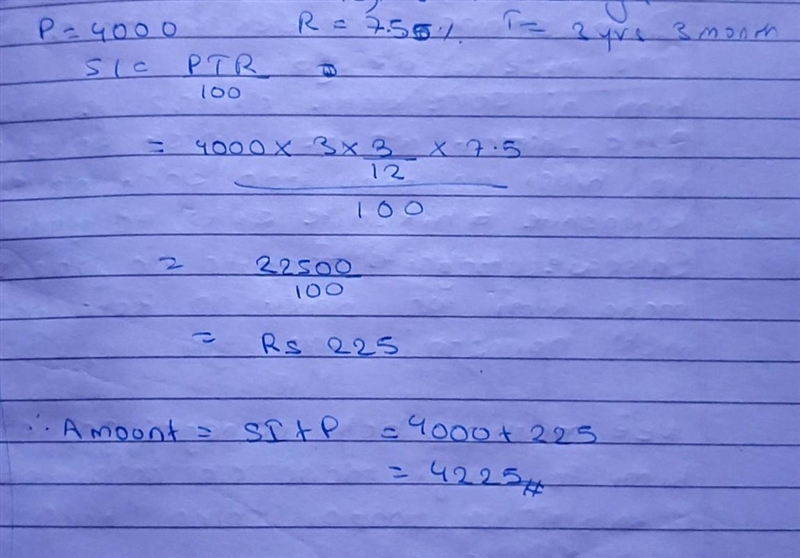 P = 4000 R = 7.5% T = 3 yrs 3 month
SI = PTR
100
= 4000 × 3 × 3 × 7.5
12
100
= 22500
100
= Rs 225
∴ Amount = SI + P = 4000 + 225
= 4225 #